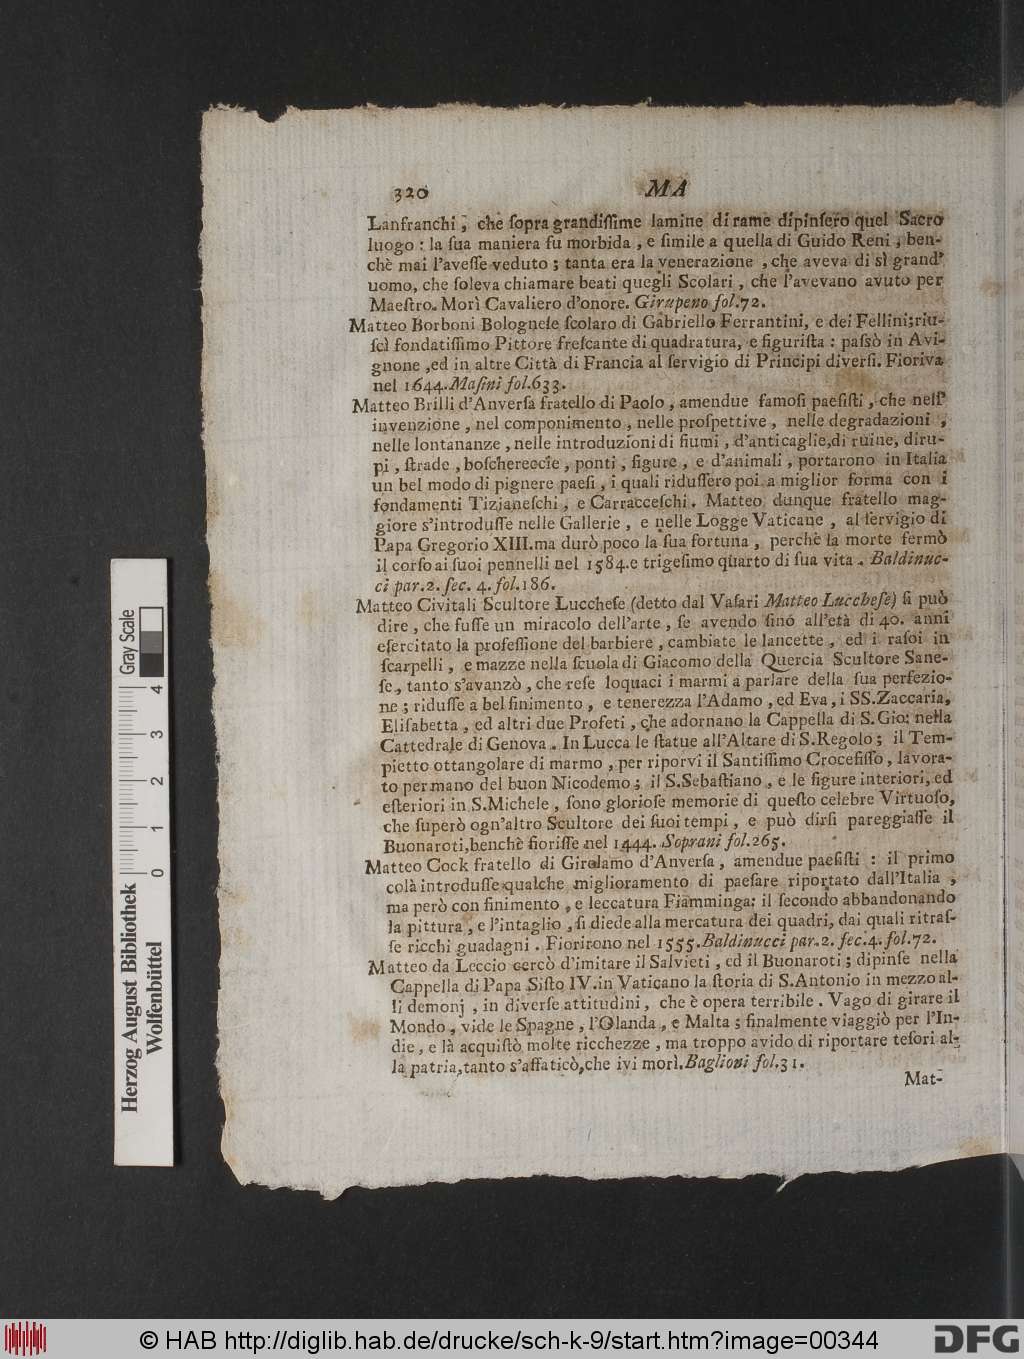 320 MA
Lanfranchi, che ſopra grandiſſime lamine di rame dipinſero quel Sacro
luogo: la ſua maniera fu morbida, e ſimile a quella di Guido Reni, ben-
chè mai l'aveſſe veduto; tanta era la venerazione, che aveva di sì grand'
uomo, che ſoleva chiamare beati quegli Scolari, che l'avevano avuto per
Maeſtro. Morì Cavaliero d'onore. Girupeno fol. 72.
Matteo Borboni Bologneſe ſcolaro di Gabriello Ferrantini, e dei Fellini; riu-
ſcì fondatiſſimo Pittore freſcante di quadratura, e figuriſta: paſsò in Avi-
gnone, ed in altre Città di Francia al ſervigio di Principi diverſi. Fioriva
nel 1644. Maſini fol. 633.
Matteo Brilli d'Anverſa fratello di Paolo, amendue famoſi paeſiſti, che nell'
invenzione, nel componimento, nelle proſpettive, nelle degradazioni,
nelle lontananze, nelle introduzioni di fiumi, d'anticaglie, di ruine, diru-
pi, ſtrade, boſchereccie, ponti, figure, e d'animali, portarono in Italia
un bel modo di pignere paeſi, i quali riduſſero poi a miglior forma con i
fondamenti Tizianeſchi, e Carracceſchi. Matteo dunque fratello mag-
giore s'introduſſe nelle Gallerie, e nelle Logge Vaticane, al ſervigio di
Papa Gregorio XIII. ma durò poco la ſua fortuna, perchè la morte fermò
il corſo ai ſuoi pennelli nel 1584. e trigeſimo quarto di ſua vita. Baldinuc-
ci par. 2. ſec. 4. fol. 186.
Matteo Civitali Scultore Luccheſe (detto dal Vaſari Matteo Luccheſe) ſi può
dire, che fuſſe un miracolo dell'arte, ſe avendo ſino all'età di 40. anni
eſercitato la profeſſione del barbiere, cambiate le lancette, ed i raſoi in
ſcarpelli, e mazze nella ſcuola di Giacomo della Quercia Scultore Sane-
ſe, tanto s'avanzò, che reſe loquaci i marmi a parlare della ſua perfezio-
ne; riduſſe a bel finimento, e tenerezza l'Adamo, ed Eva, i SS. Zaccaria,
Eliſabetta, ed altri due Profeti, che adornano la Cappella di S. Gio: nella
Cattedrale di Genova. In Lucca le ſtatue all'Altare di S. Regolo; il Tem-
pietto ottangolare di marmo, per riporvi il Santiſſimo Crocefiſſo, lavora-
to per mano del buon Nicodemo; il S. Sebaſtiano, e le figure interiori, ed
eſteriori in S. Michele, ſono glorioſe memorie di queſto celebre Virtuoſo,
che ſuperò ogn'altro Scultore dei ſuoi tempi, e può dirſi pareggiaſſe il
Buonaroti, benchè fioriſſe nel 1444. Soprani fol. 265.
Matteo Cock fratello di Girolamo d'Anverſa, amendue paeſiſti: il primo
colà introduſſe qualche miglioramento di paeſare riportato dall'Italia,
ma però con finimento, e leccatura Fiamminga: il ſecondo abbandonando
la pittura, e l'intaglio, ſi diede alla mercatura dei quadri, dai quali ritraſ-
ſe ricchi guadagni. Fiorirono nel 1555. Baldinucci par. 2. ſec. 4. fol. 72.
Matteo da Leccio cercò d'imitare il Salvieti, ed il Buonaroti; dipinſe nella
Cappella di Papa Siſto IV. in Vaticano la ſtoria di S. Antonio in mezzo al-
li demonj, in diverſe attitudini, che è opera terribile. Vago di girare il
Mondo, vide le Spagne, l'Olanda, e Malta; finalmente viaggiò per l'In-
die, e là acquiſtò molte ricchezze, ma troppo avido di riportare teſori al-
la patria, tanto s'affaticò, che ivi morì. Baglioni fol. 31.
Mat-
Herzog August Bibliothek
Wolfenbüttel
0 1 2 3 4
Gray Scale
© HAB http://diglib.hab.de/drucke/sch-k-9/start.htm?image=00344
DFG